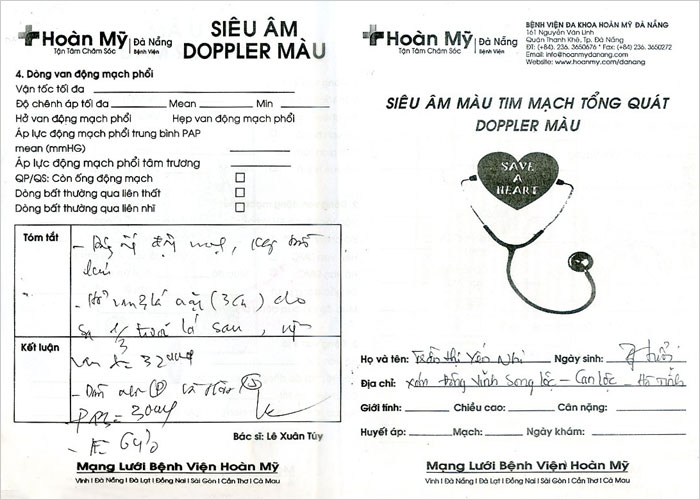 Hoàn Mỹ | Đà Nẵng
Tận Tâm Chăm Sóc Bệnh Viện
SIÊU ÂM
DOPPLER MÀU
4. Dòng van động mạch phổi
Vận tốc tối đa
Độ chênh áp tối đa Mean Min
Hở van động mạch phổi Hẹp van động mạch phổi
Áp lực động mạch phổi trung bình PAP
mean (mmHG)
Áp lực động mạch phổi tâm trương
QP/QS: Còn ống động mạch
Dòng bất thường qua liên thất
Dòng bất thường qua liên nhĩ
Tóm tắt
- Hở van 2 lá nặng (3/4) do
sa 1/3 lá sau, vòng
Kết luận
van = 32 mm
- Dãn
= 30
- EF 64%
Bác sĩ: Lê Xuân Túy
Mạng Lưới Bệnh Viện Hoàn Mỹ
Vinh | Đà Nẵng | Đà Lạt | Đồng Nai | Sài Gòn | Cần Thơ | Cà Mau
Hoàn Mỹ | Đà Nẵng
Tận Tâm Chăm Sóc Bệnh Viện
BỆNH VIỆN ĐA KHOA HOÀN MỸ ĐÀ NẴNG
161 Nguyễn Văn Linh
Quận Thanh Khê, Tp. Đà Nẵng
ĐT: (+84). 236. 3650676 * Fax: (+84) 236. 3650272
Email: info@hoanmydanang.com
Website: www.hoanmy.com/danang
SIÊU ÂM MÀU TIM MẠCH TỔNG QUÁT
DOPPLER MÀU
SAVE
A
HEART
Họ và tên: Trần Thị Yến Nhi Ngày sinh: 7 tuổi
Địa chỉ: xóm Đông Vinh Song Lộc - Can Lộc - Hà Tĩnh
Giới tính: Chiều cao: Cân nặng:
Huyết áp: Mạch: Ngày khám:
Mạng Lưới Bệnh Viện Hoàn Mỹ
Vinh | Đà Nẵng | Đà Lạt | Đồng Nai | Sài Gòn | Cần Thơ | Cà Mau